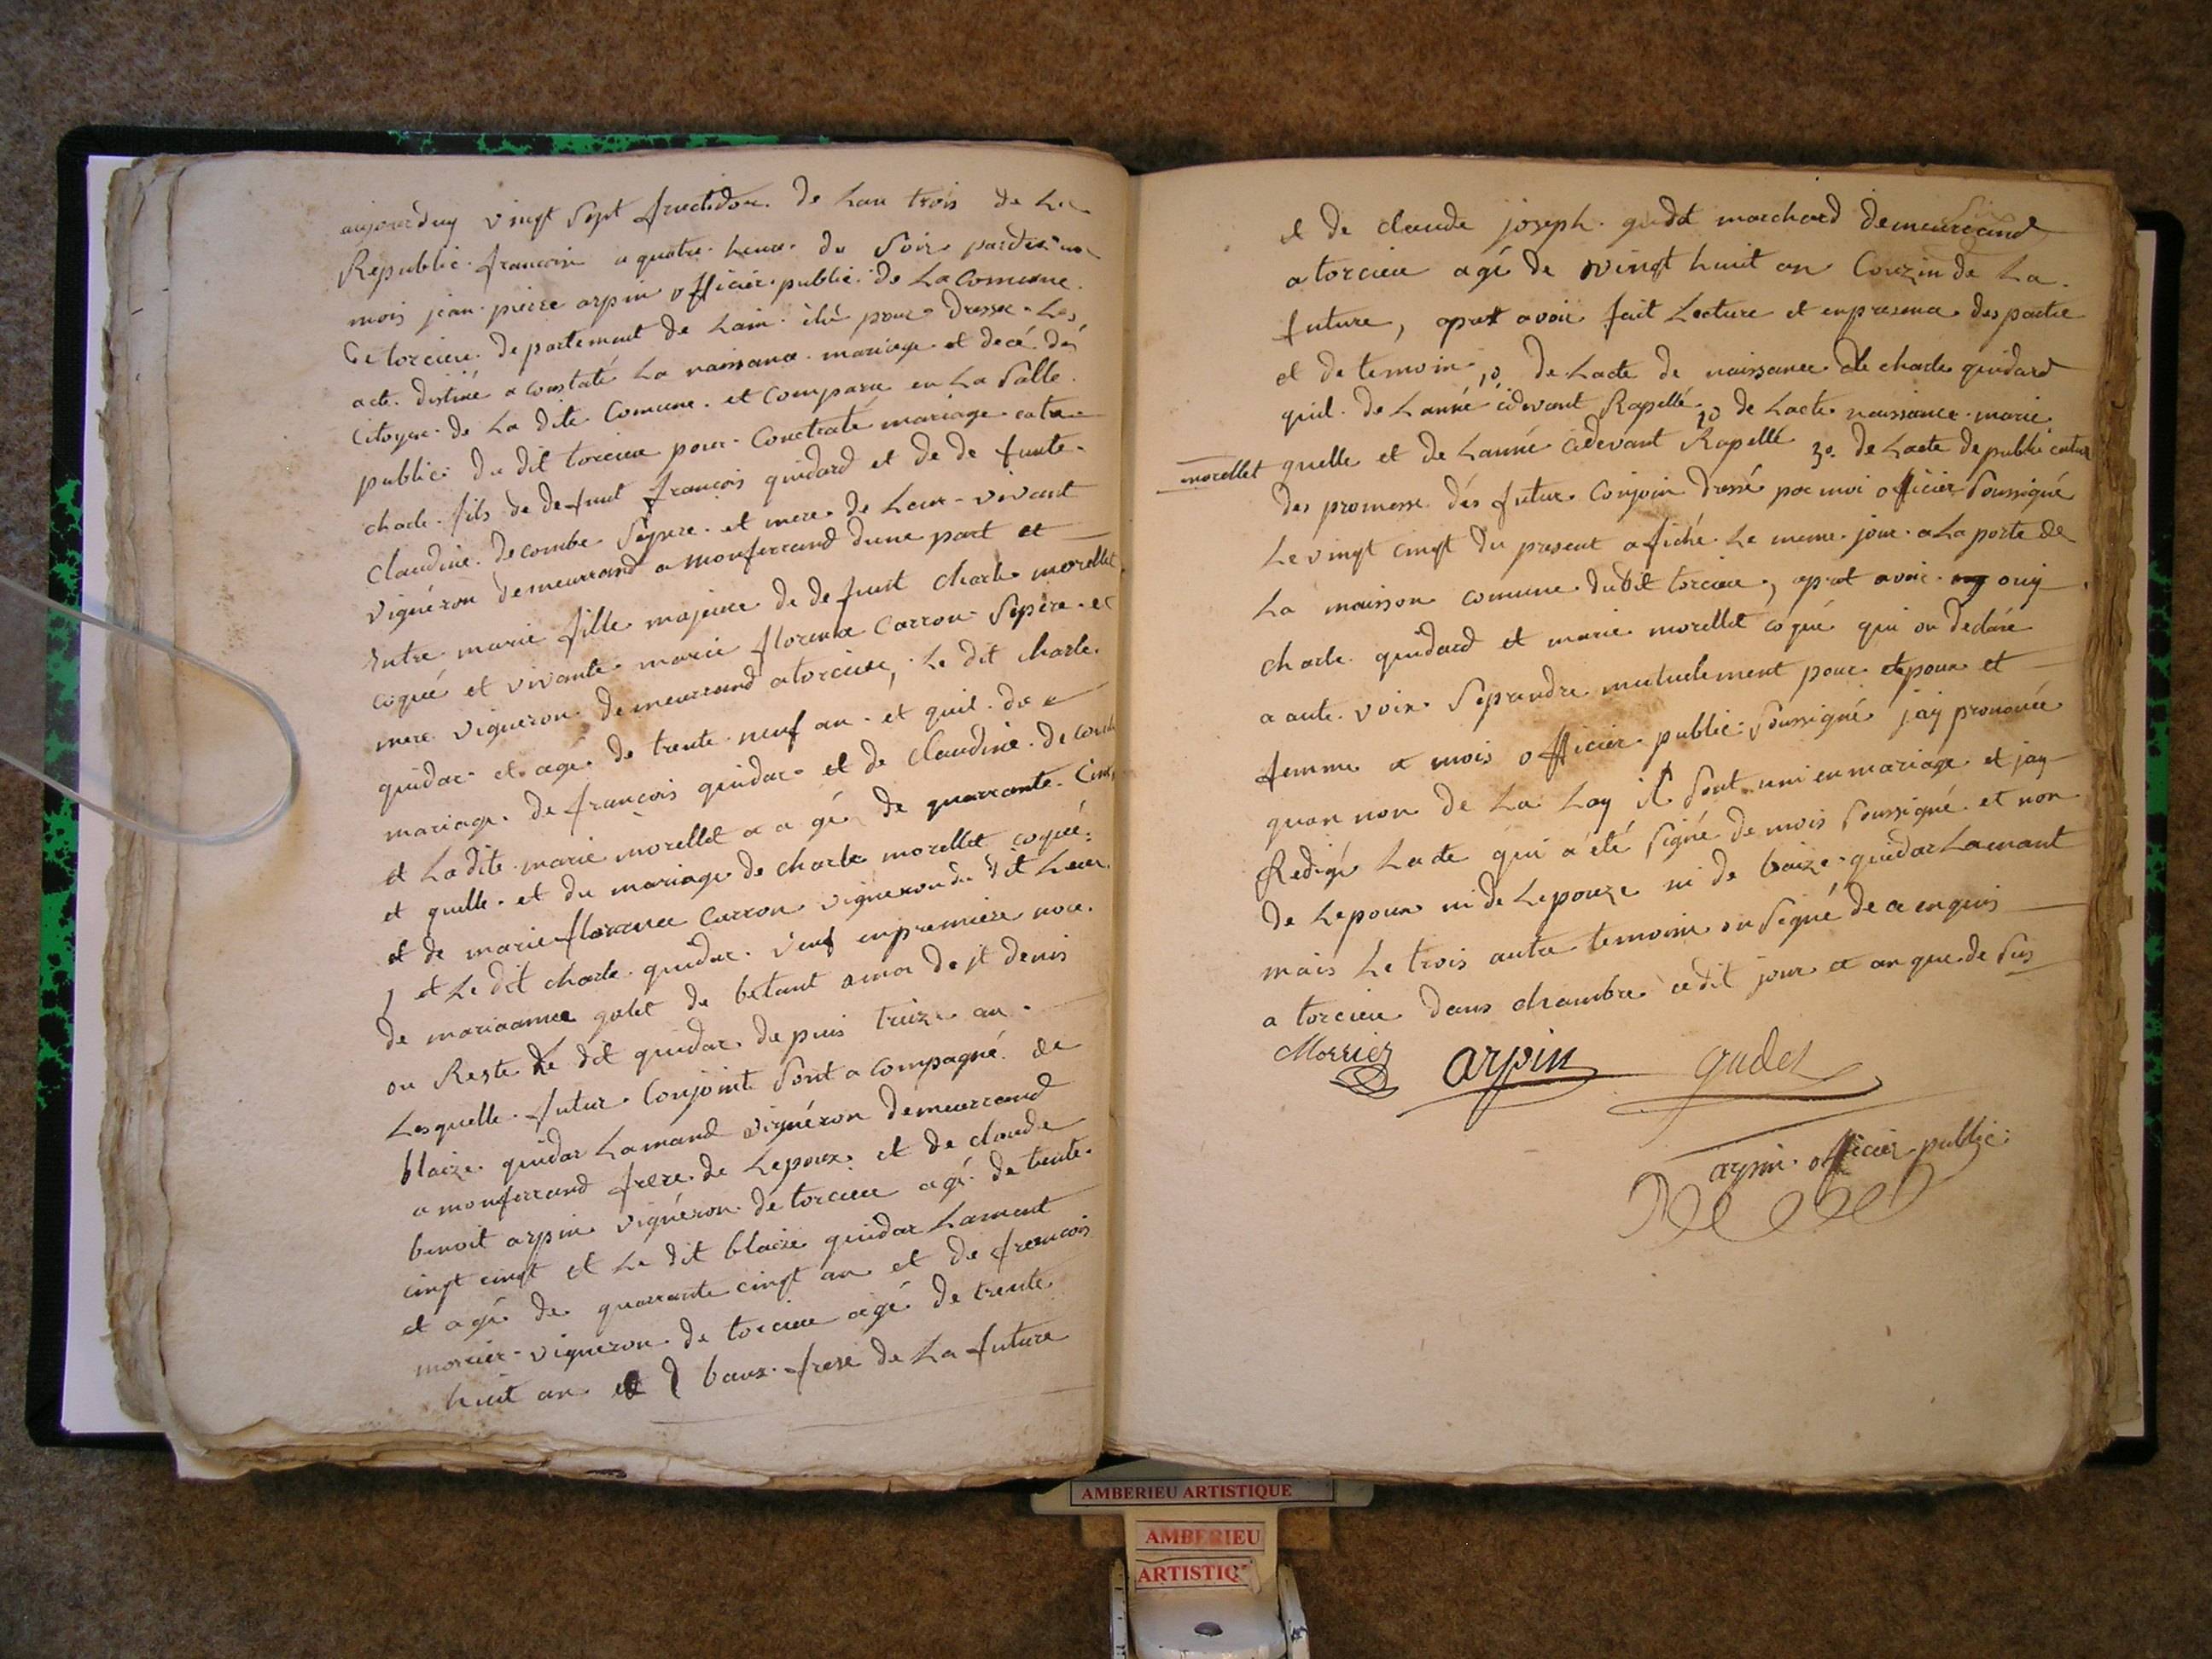 aujourduy vingt sept fructidor de Lan trois de La
Republic francoise a quatre heure du soir pardevan
mois jean pierre arpin officier public de La Comune
de torcieu departement de Lain élu pour dresser Les
acte distiné a constaté La naissance mariage et décé des
Citoyen de La dite Comune et comparu en La Salle
public du dit torcieu pour Contraté mariage entre
charle fils de defunt françois guidard et de defunte
Claudine decombe Sepere et mere de Leur vivant
vignéron demeurrand a monferrand dune part et
Entre marie fille majeure de defunt charle morellet
coqué et vivante marie florence Carron Sepère et
mere vigneron demeurrand a torcieu, Le dit charle
guidar et agé de trente neuf an et quil du
mariage de françois guidar et de Claudine de comb
et Ladite marie morellet a agé de quarrante Cinq
et quelle et du mariage de charle morellet coqué
et de marie florance Carron vigneron du dit Lieu
et Le dit charle guidar veuf en premiere noce
de mariaanne golet de betant de st denis
ou Reste Le dit guidar depuis treize an
Lesquelle futur Conjoint Sont a Compagné de
blaize guidar Lamand vignéron demeurrand
a monferrand frere de Lepoux et de claude
benoit arpin vignéron de torcieu agé de trente
cingt et Le dit blaize guidar Lamant
et agé de quarrante cingt an et de francois
morrier vigneron de torcieu agé de trente
huit an et baux frere de La future
et de claude joseph gudet marchard demeureand
a torcieu agé de vingt huit an Couzin de La
future, apret avoir fait Lecture et en presence des partie
et de temoin 1o de Lacte de naissance de charle guidard
quil de Lanné cidevant Rapellé 2o de Lacte naissance marie
morellet quelle et de Lanné cidevant Rapellé 3o de Lacte de publication
des promesse dés futur Conjoin dressé par moi officier Soussigné
Le vingt cingt du present afiché Le meme jour a La porte de
La maison comune dudit torcieu, apret avoir ouy
charle guidard et marie morellet coqué qui on declaré
a aute voixSeprendre mutuelement pour epoux et
femme et mois officier public Soussigné jay prononcé
quan non de La Loy il Sont uni en mariage et jay
Redigé Lacte qui a été Signé de mois Soussigné et non
de Lepoux ni de Lepouze ni de baize guidar Lamant
mais Le trois autre temoin on Signé de ce enquis
a torcieu dans chambre cedit jour et an que de Sus
Morrier arpin gudet
arpin officier public
AMBERIEU ARTISTIQUE
AMBERIEU
ARTISTIQ